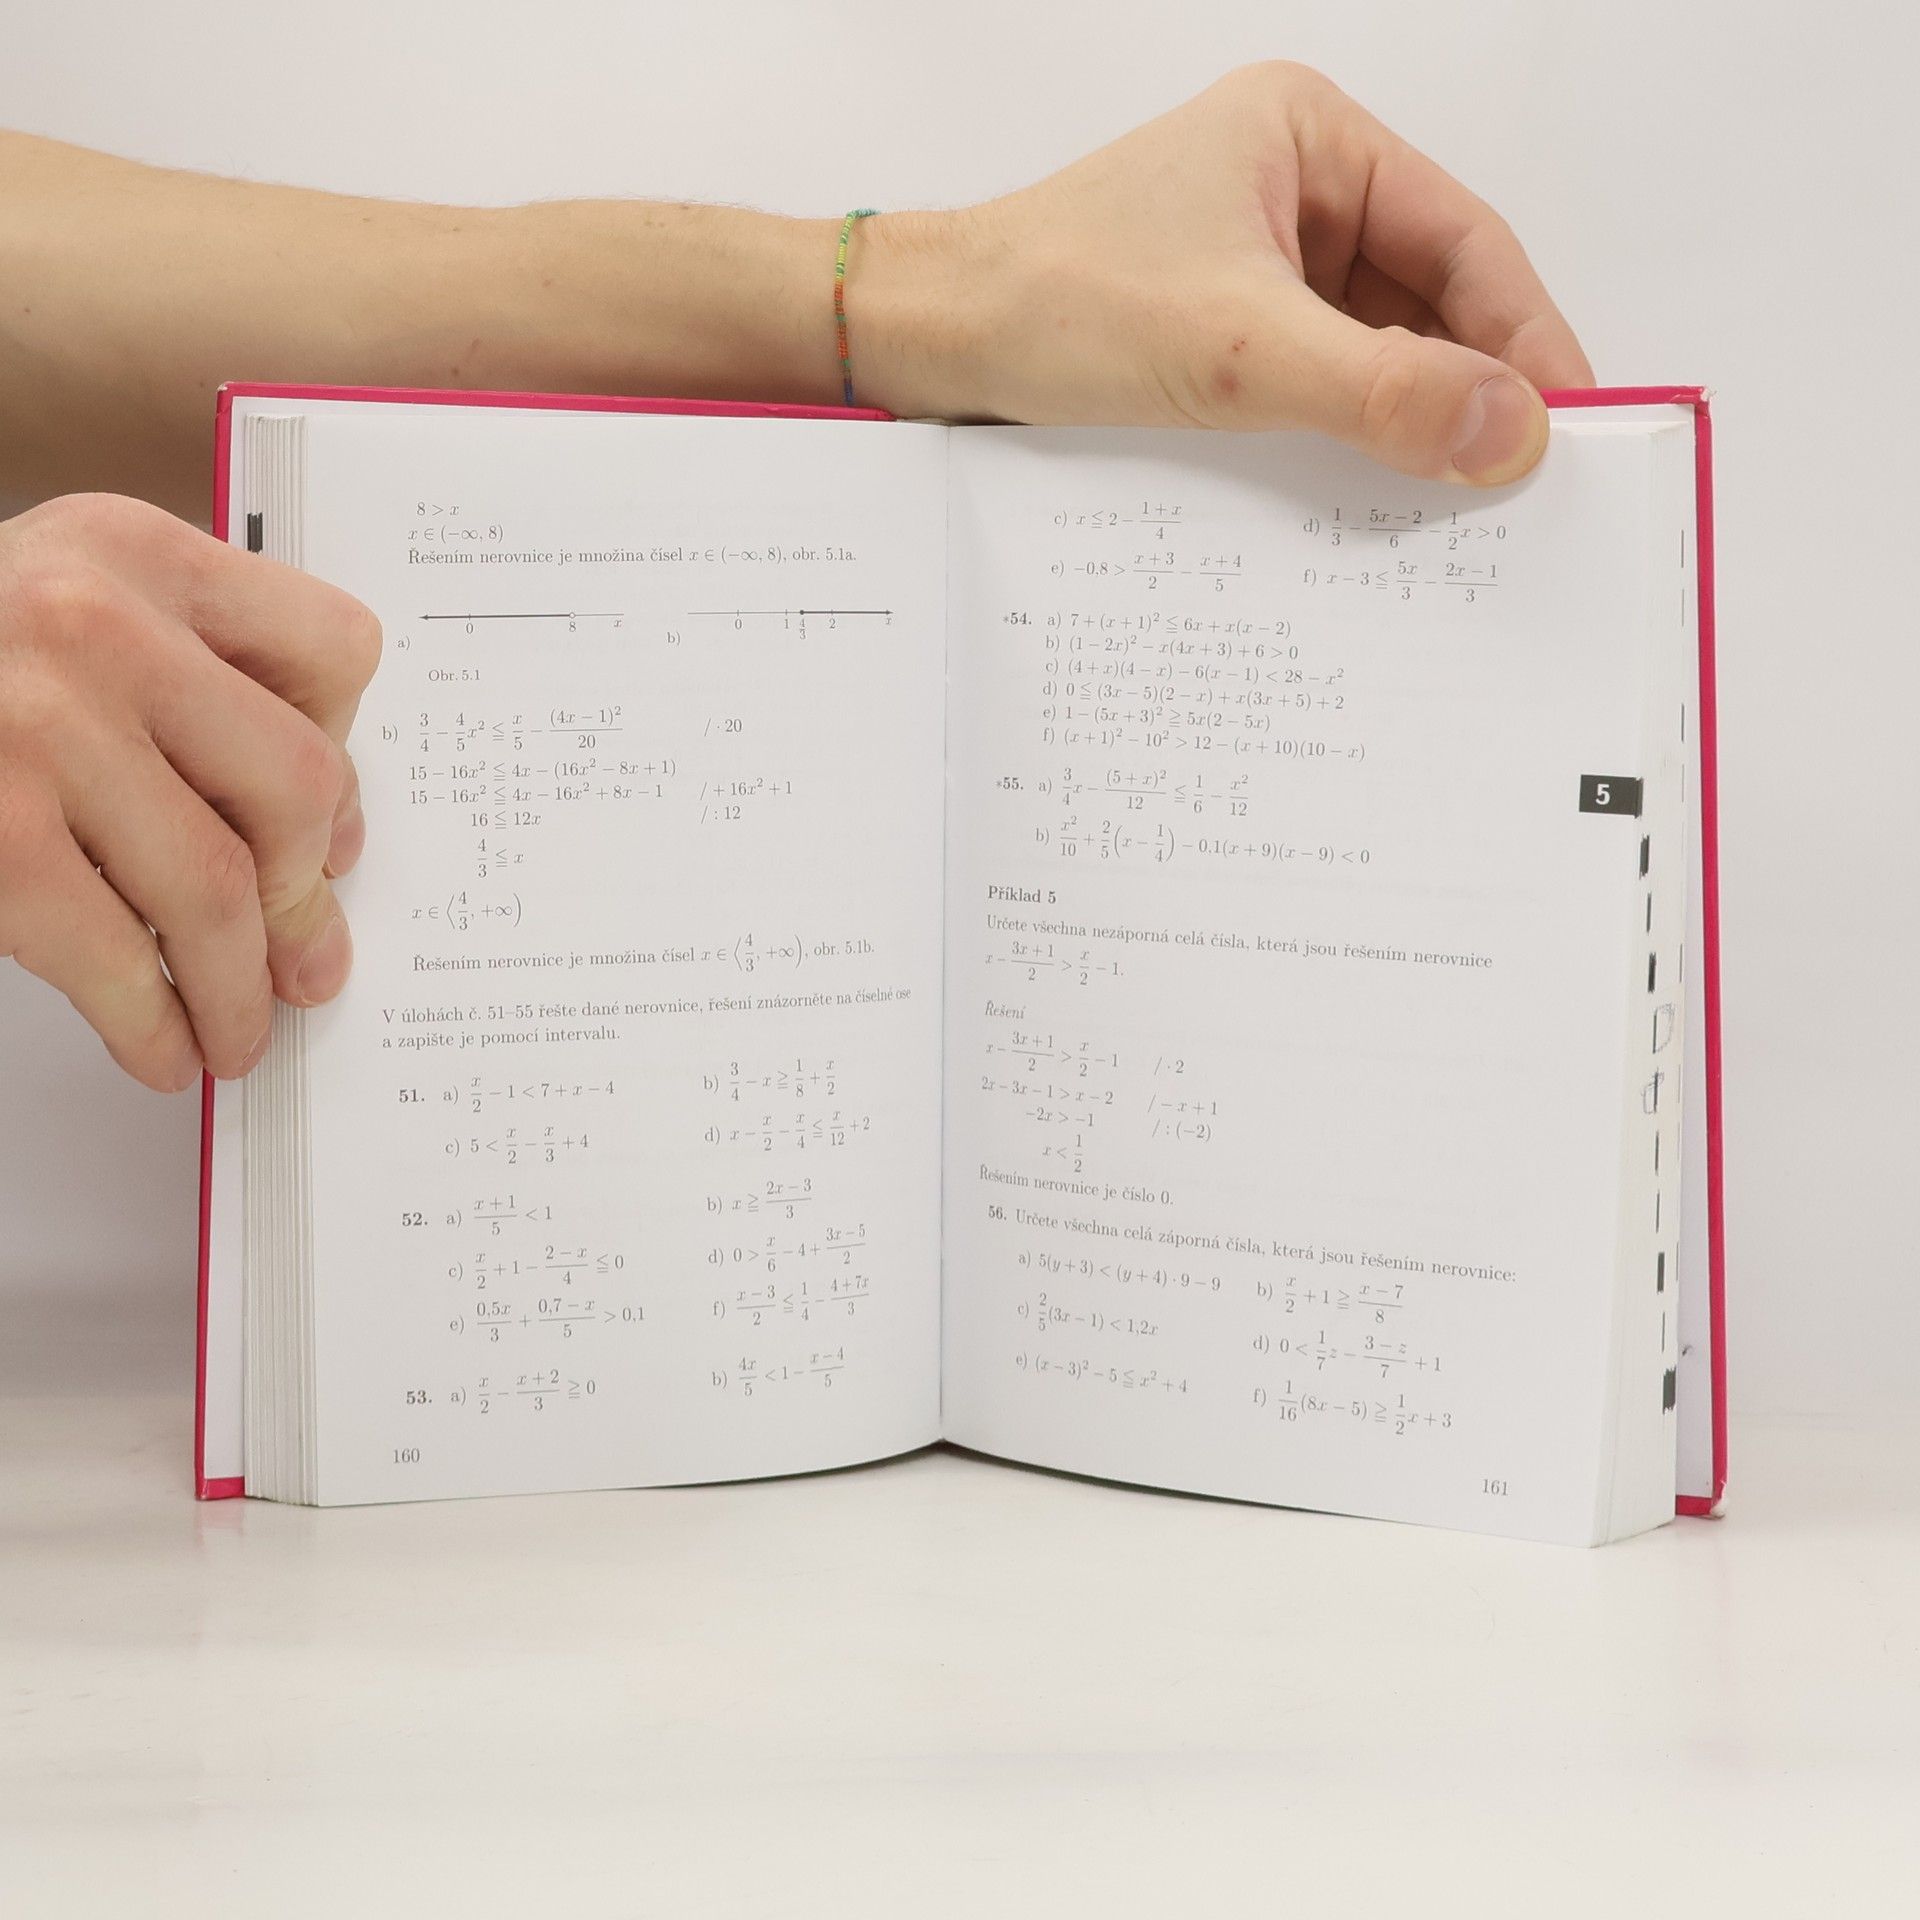 8 > x
x ∈ (−∞, 8)
Řešením nerovnice je množina čísel x ∈ (−∞, 8), obr. 5.1a.
a) 0 8 x
b) 0 1 4/3 2 x
Obr. 5.1
b) 3/4 − 4/5 x² ≦ x/5 − (4x − 1)²/20 / · 20
15 − 16x² ≦ 4x − (16x² − 8x + 1)
15 − 16x² ≦ 4x − 16x² + 8x − 1 / + 16x² + 1
16 ≦ 12x / : 12
4/3 ≦ x
x ∈ ⟨4/3, +∞)
Řešením nerovnice je množina čísel x ∈ ⟨4/3, +∞), obr. 5.1b.
V úlohách č. 51–55 řešte dané nerovnice, řešení znázorněte na číselné ose
a zapište je pomocí intervalu.
51. a) x/2 − 1 < 7 + x − 4 b) 3/4 − x ≧ 1/8 + x/2
c) 5 < x/2 − x/3 + 4 d) x − x/2 − x/4 ≦ x/12 + 2
52. a) (x + 1)/5 < 1 b) x ≧ (2x − 3)/3
c) x/2 + 1 − (2 − x)/4 ≦ 0 d) 0 > x/6 − 4 + (3x − 5)/2
e) 0,5x/3 + (0,7 − x)/5 > 0,1 f) (x − 3)/2 ≦ 1/4 − (4 + 7x)/3
53. a) x/2 − (x + 2)/3 ≧ 0 b) 4x/5 < 1 − (x − 4)/5
160
c) x ≦ 2 − (1 + x)/4 d) 1/3 − (5x − 2)/6 − 1/2 x > 0
e) −0,8 > (x + 3)/2 − (x + 4)/5 f) x − 3 ≦ 5x/3 − (2x − 1)/3
*54. a) 7 + (x + 1)² ≦ 6x + x(x − 2)
b) (1 − 2x)² − x(4x + 3) + 6 > 0
c) (4 + x)(4 − x) − 6(x − 1) < 28 − x²
d) 0 ≦ (3x − 5)(2 − x) + x(3x + 5) + 2
e) 1 − (5x + 3)² ≧ 5x(2 − 5x)
f) (x + 1)² − 10² > 12 − (x + 10)(10 − x)
*55. a) 3/4 x − (5 + x)²/12 ≦ 1/6 − x²/12
b) x²/10 + 2/5 (x − 1/4) − 0,1(x + 9)(x − 9) < 0
5
Příklad 5
Určete všechna nezáporná celá čísla, která jsou řešením nerovnice
x − (3x + 1)/2 > x/2 − 1.
Řešení
x − (3x + 1)/2 > x/2 − 1 / · 2
2x − 3x − 1 > x − 2 / − x + 1
−2x > −1 / : (−2)
x < 1/2
Řešením nerovnice je číslo 0.
56. Určete všechna celá záporná čísla, která jsou řešením nerovnice:
a) 5(y + 3) < (y + 4) · 9 − 9 b) x/2 + 1 ≧ (x − 7)/8
c) 2/5 (3x − 1) < 1,2x d) 0 < 1/7 z − (3 − z)/7 + 1
e) (x − 3)² − 5 ≦ x² + 4 f) 1/16 (8x − 5) ≧ 1/2 x + 3
161